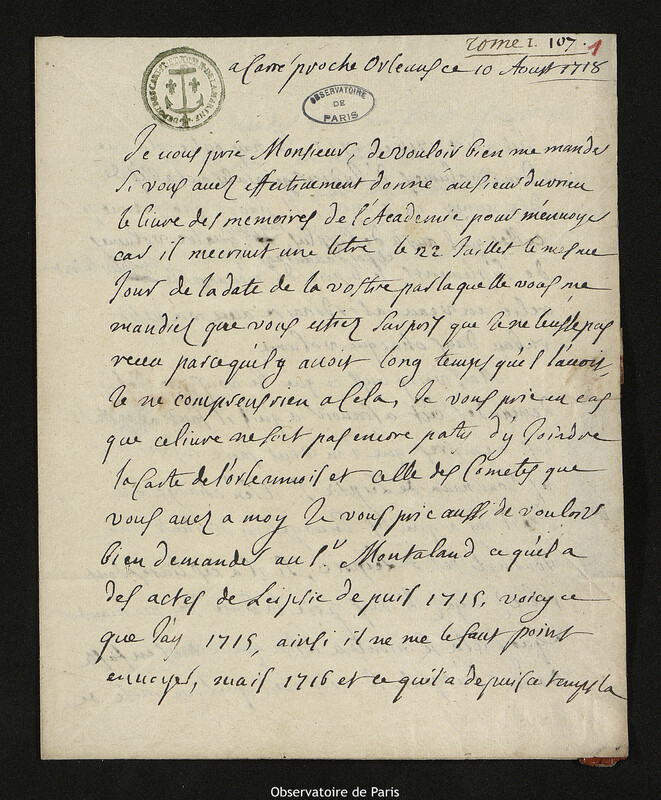 tome I. 107. 1
a Carré proche Orleans ce 10 Aoust 1718
DEPOT DES CARTES ET DE LA MARINE
OBSERVATOIRE DE PARIS
Je vous prie Monsieur, de vouloir bien me mander
si vous avez effectivement donné au sieur duvrieu
le livre des memoires de l'Academie pour m'envoyer
car il mecrivit une letre le 22 Juillet le mesme
Jour de la date de la vostre par laquelle vous me
mandiez que vous estiez surpris que Je ne leusse pas
receu parcequil y avoit long temps qu'il l'avoit,
Je ne comprens rien a Cela, Je vous prie en cas
que ce livre ne soit pas encore party d'y Joindre
la Carte de l'orleannois et celle des Cometes que
vous avez a moy Je vous prie aussi de vouloir
bien demander au Sr. Montaland ce quil a
des actes de Leipsic depuis 1715, voicy ce
que J'ay 1715, ainsi il ne me le faut point
envoyer, mais 1716 et ce quil a depuis ce temps la
Observatoire de Paris